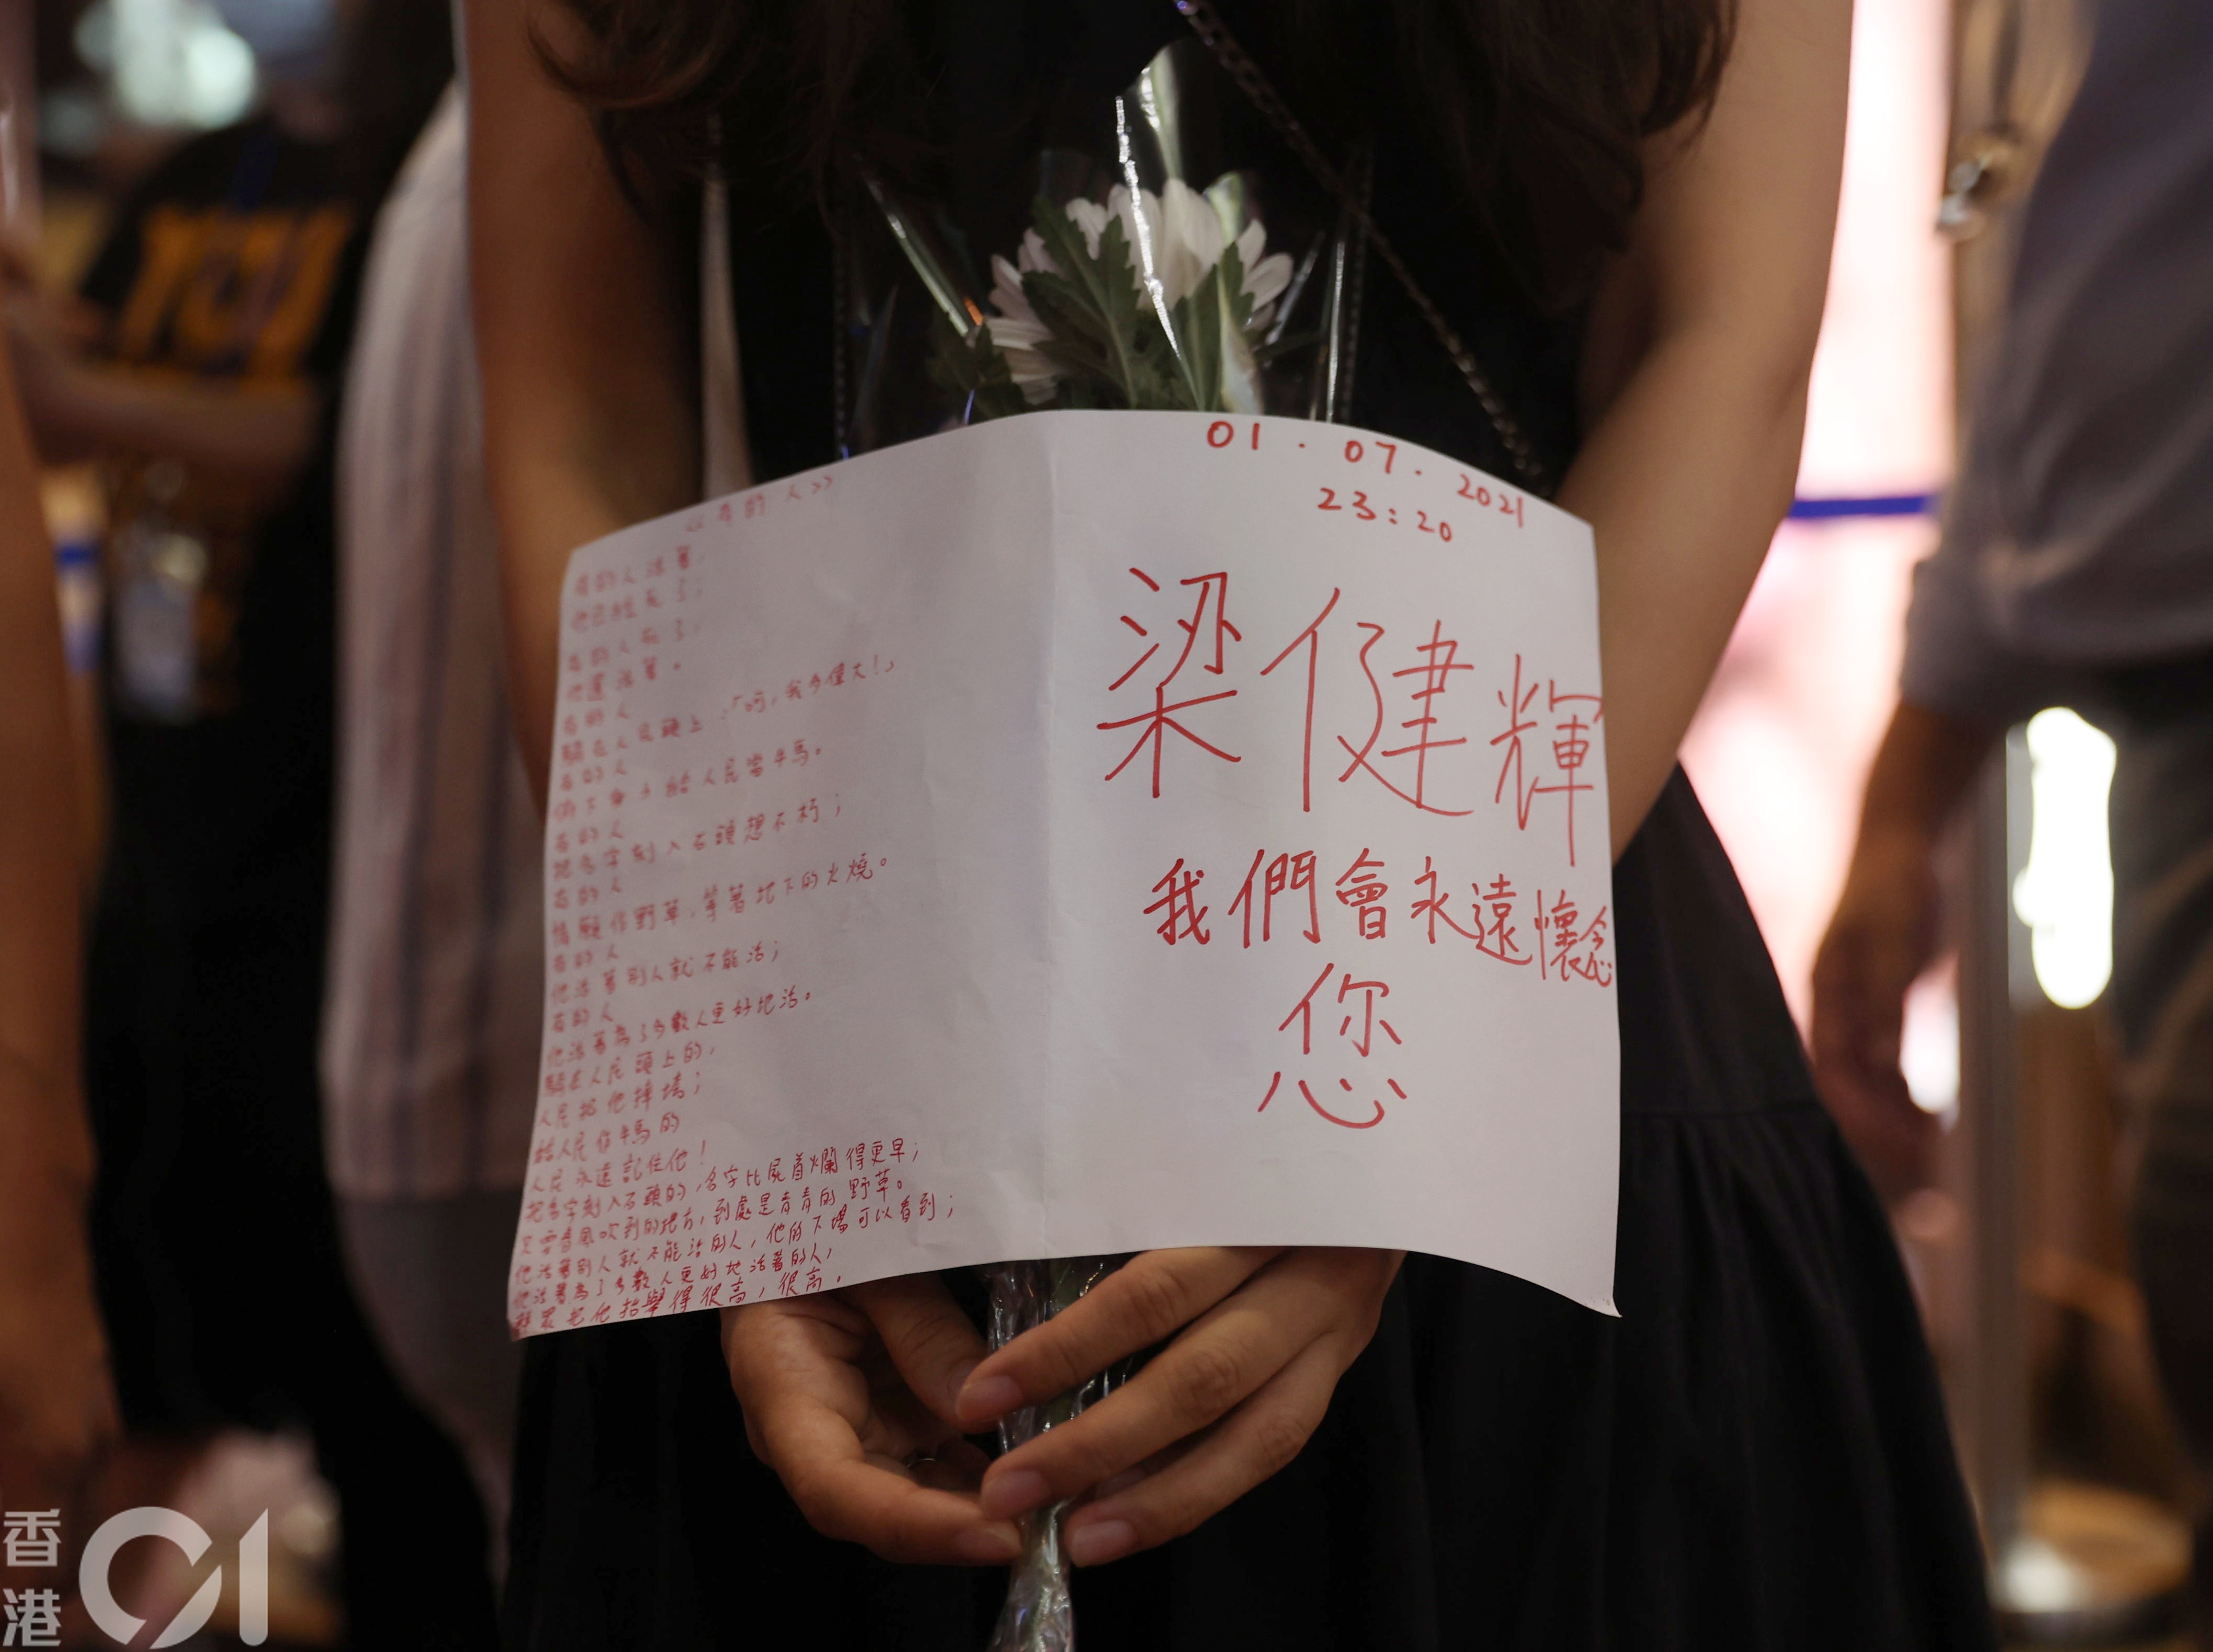 《有的人》
有的人活著,
他已經死了;
有的人死了,
他還活著。
有的人
騎在人民頭上:「呵,我多偉大!」
有的人
俯下身子給人民當牛馬。
有的人
把名字刻入石頭想不朽;
有的人
情願作野草,等著地下的火燒。
有的人
他活著別人就不能活;
有的人
他活著為了多數人更好地活。
騎在人民頭上的,
人民把他摔垮;
給人民作牛馬的
人民永遠記住他!
把名字刻入石頭的,名字比屍首爛得更早;
只要春風吹到的地方,到處是青青的野草。
他活著別人就不能活的人,他的下場可以看到;
他活著為了多數人更好地活著的人,
群眾把他抬舉得很高,很高。
01.07.2021
23:20
梁健輝
我們會永遠懷念
您
香港01